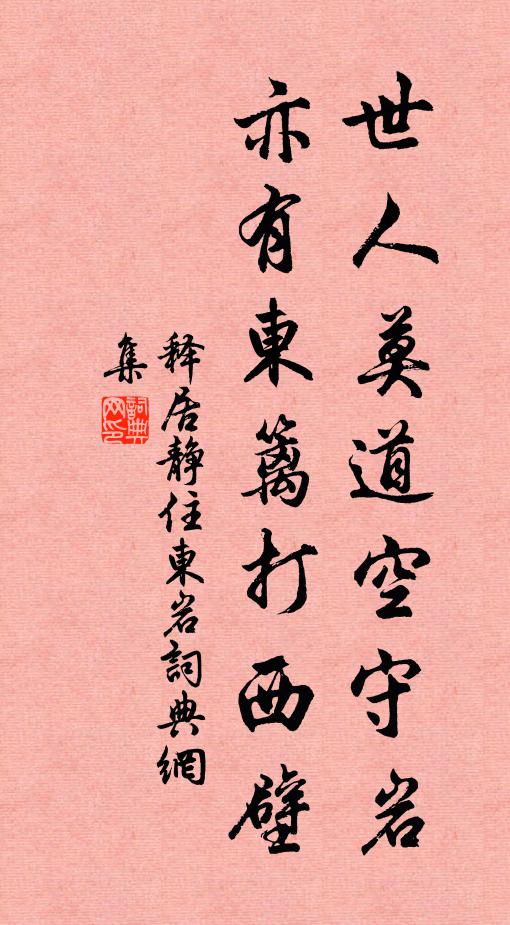 世人莫道空守岩
亦有東籬打西壁
释居静住東岩詞典網
集
詞典網印